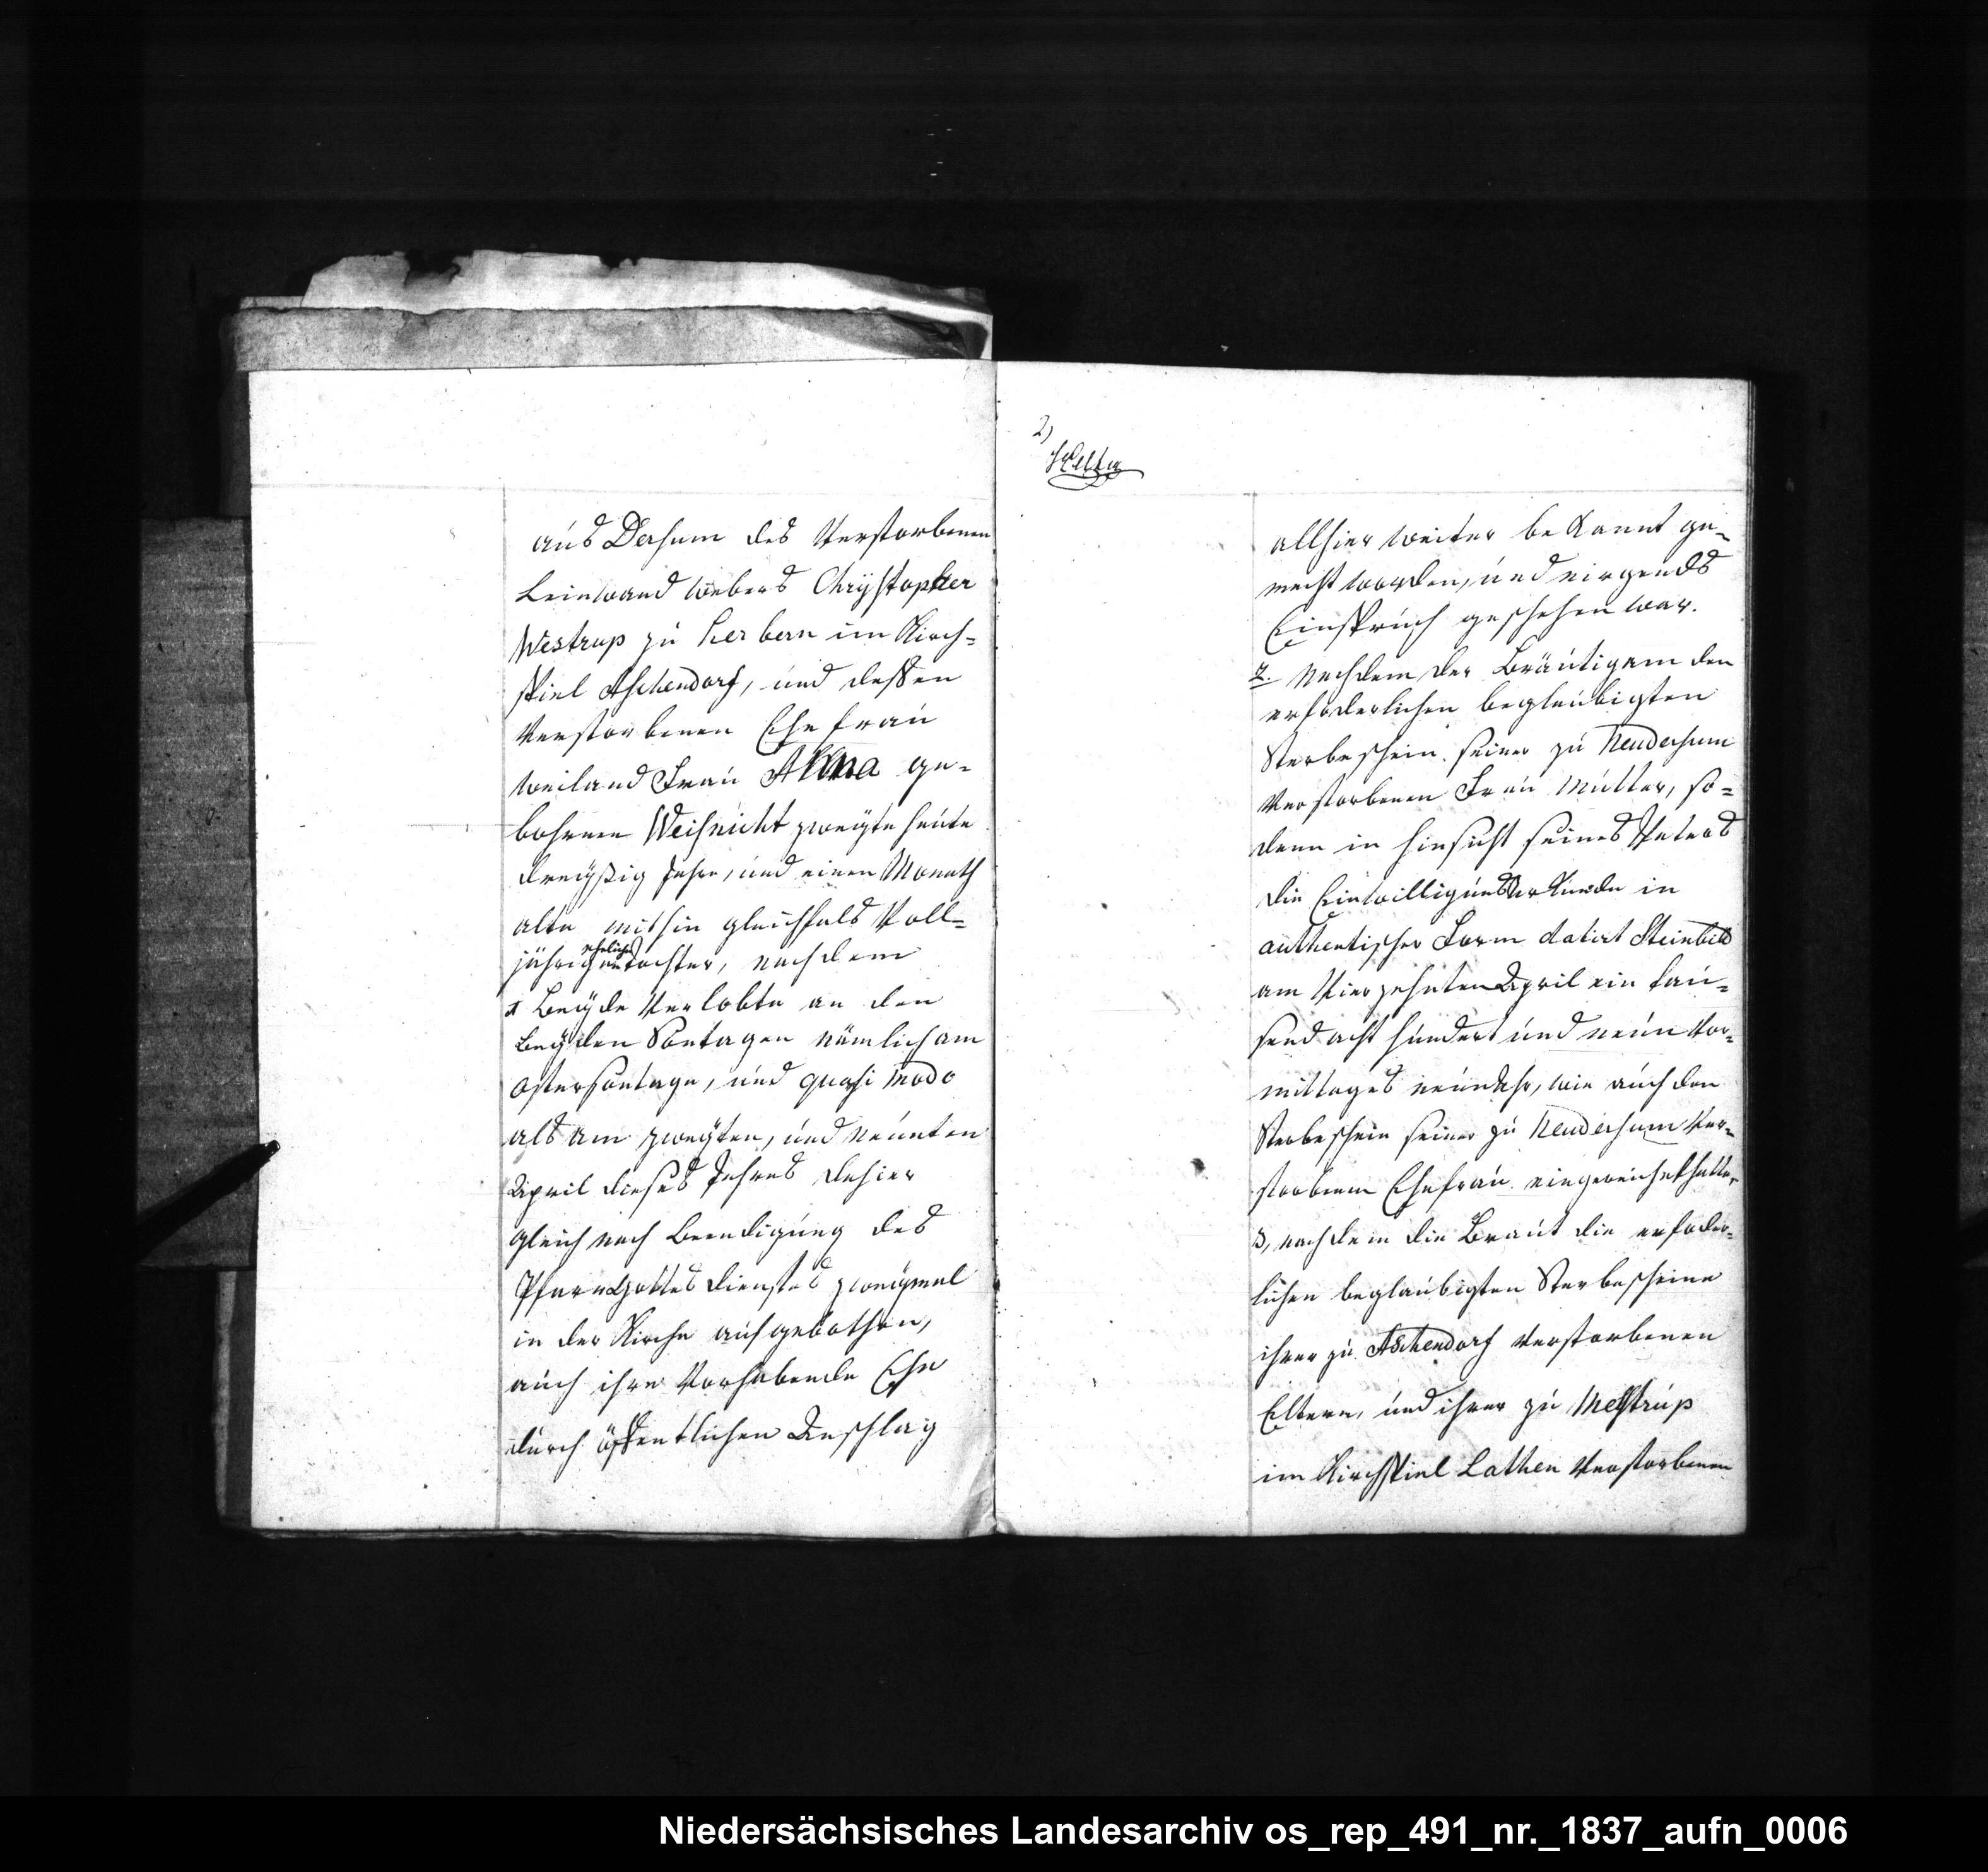 aus Dersum des Verstorbenen
Leinwand webers Chrÿstopher
Westrup zu Herbern im Kirch=
spiel Aschendorf, und dessen
Verstorbenen Ehefrau
weiland Frau Anna ge=
bohrnen zweÿte heute
dreÿßig Jahre, und einen Monath
alte mithin gleichfals Voll=
jährige eheliche tochter, nachdem
1 Beÿde Verlobte an den
beÿden Sontagen nämlich am
ostersontage, und quasi modo
als am zweÿten, und neunten
April dieses Jahres dahier
gleich nach Beendigung des
Pfarrgottes dienstes zweÿmal
in der Kirche aufgebothen,
auch ihre Vorhabende Ehe
durch öffentlichen Anschlag
2)
allhier weiter bekannt ge=
macht worden, und nirgends
Einspruch geschehen war.
2. Nachdem der Bräutigam den
erfoderlichen beglaubigten
Sterbeschein seiner zu Neudersum
Verstorbenen Frau Mutter, so=
dann in hinsicht seines Vaters
die Einwilligungs Urkunde in
authentischer Form datirt Steinbild
am Vierzehnten April ein tau=
send acht hundert und neun Vor=
mittages neun Uhr, wie auch den
Sterbeschein seiner zu Neudersum Ver=
storbenen Ehefrau eingereichet hatte,
3, nachdem die Braut die erfoder=
lichen beglaubigten Sterbescheine
ihrer zu Aschendorf Verstorbenen
Eltern, und ihrer zu Melstrup
im Kirchspiel Lathen Verstorbenen
Niedersächsisches Landesarchiv os_rep_491_nr._1837_aufn_0006